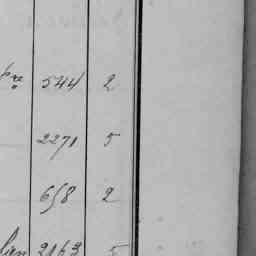 544 2
2271 5
658 2
2163 5